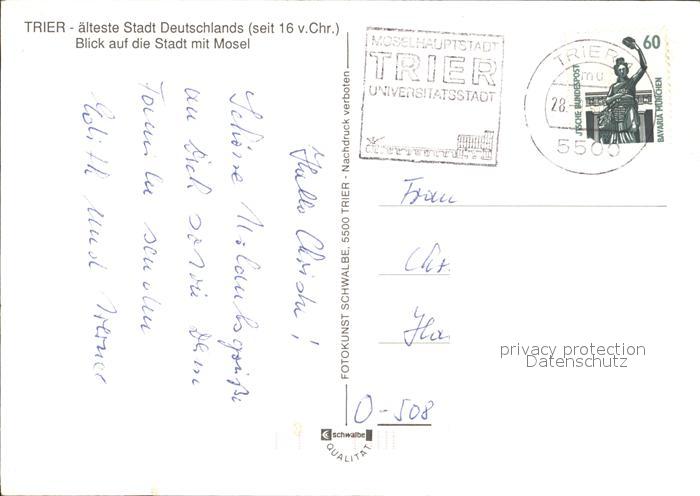 TRIER - älteste Stadt Deutschlands (seit 16 v.Chr.)
Blick auf die Stadt mit Mosel
Hallo Christa!
Schöne Urlaubsgrüße
an Dich sowie Deine
Familie senden
Edith und Werner
FOTOKUNST SCHWALBE, 5500 TRIER - Nachdruck verboten
MOSELHAUPTSTADT
TRIER
UNIVERSITÄTSSTADT
TRIER
mu
28.
5500
60
DEUTSCHE BUNDESPOST
BAVARIA MÜNCHEN
Frau
Chr.
Ha
privacy protection
Datenschutz
O-508
schwalbe
QUALITÄT